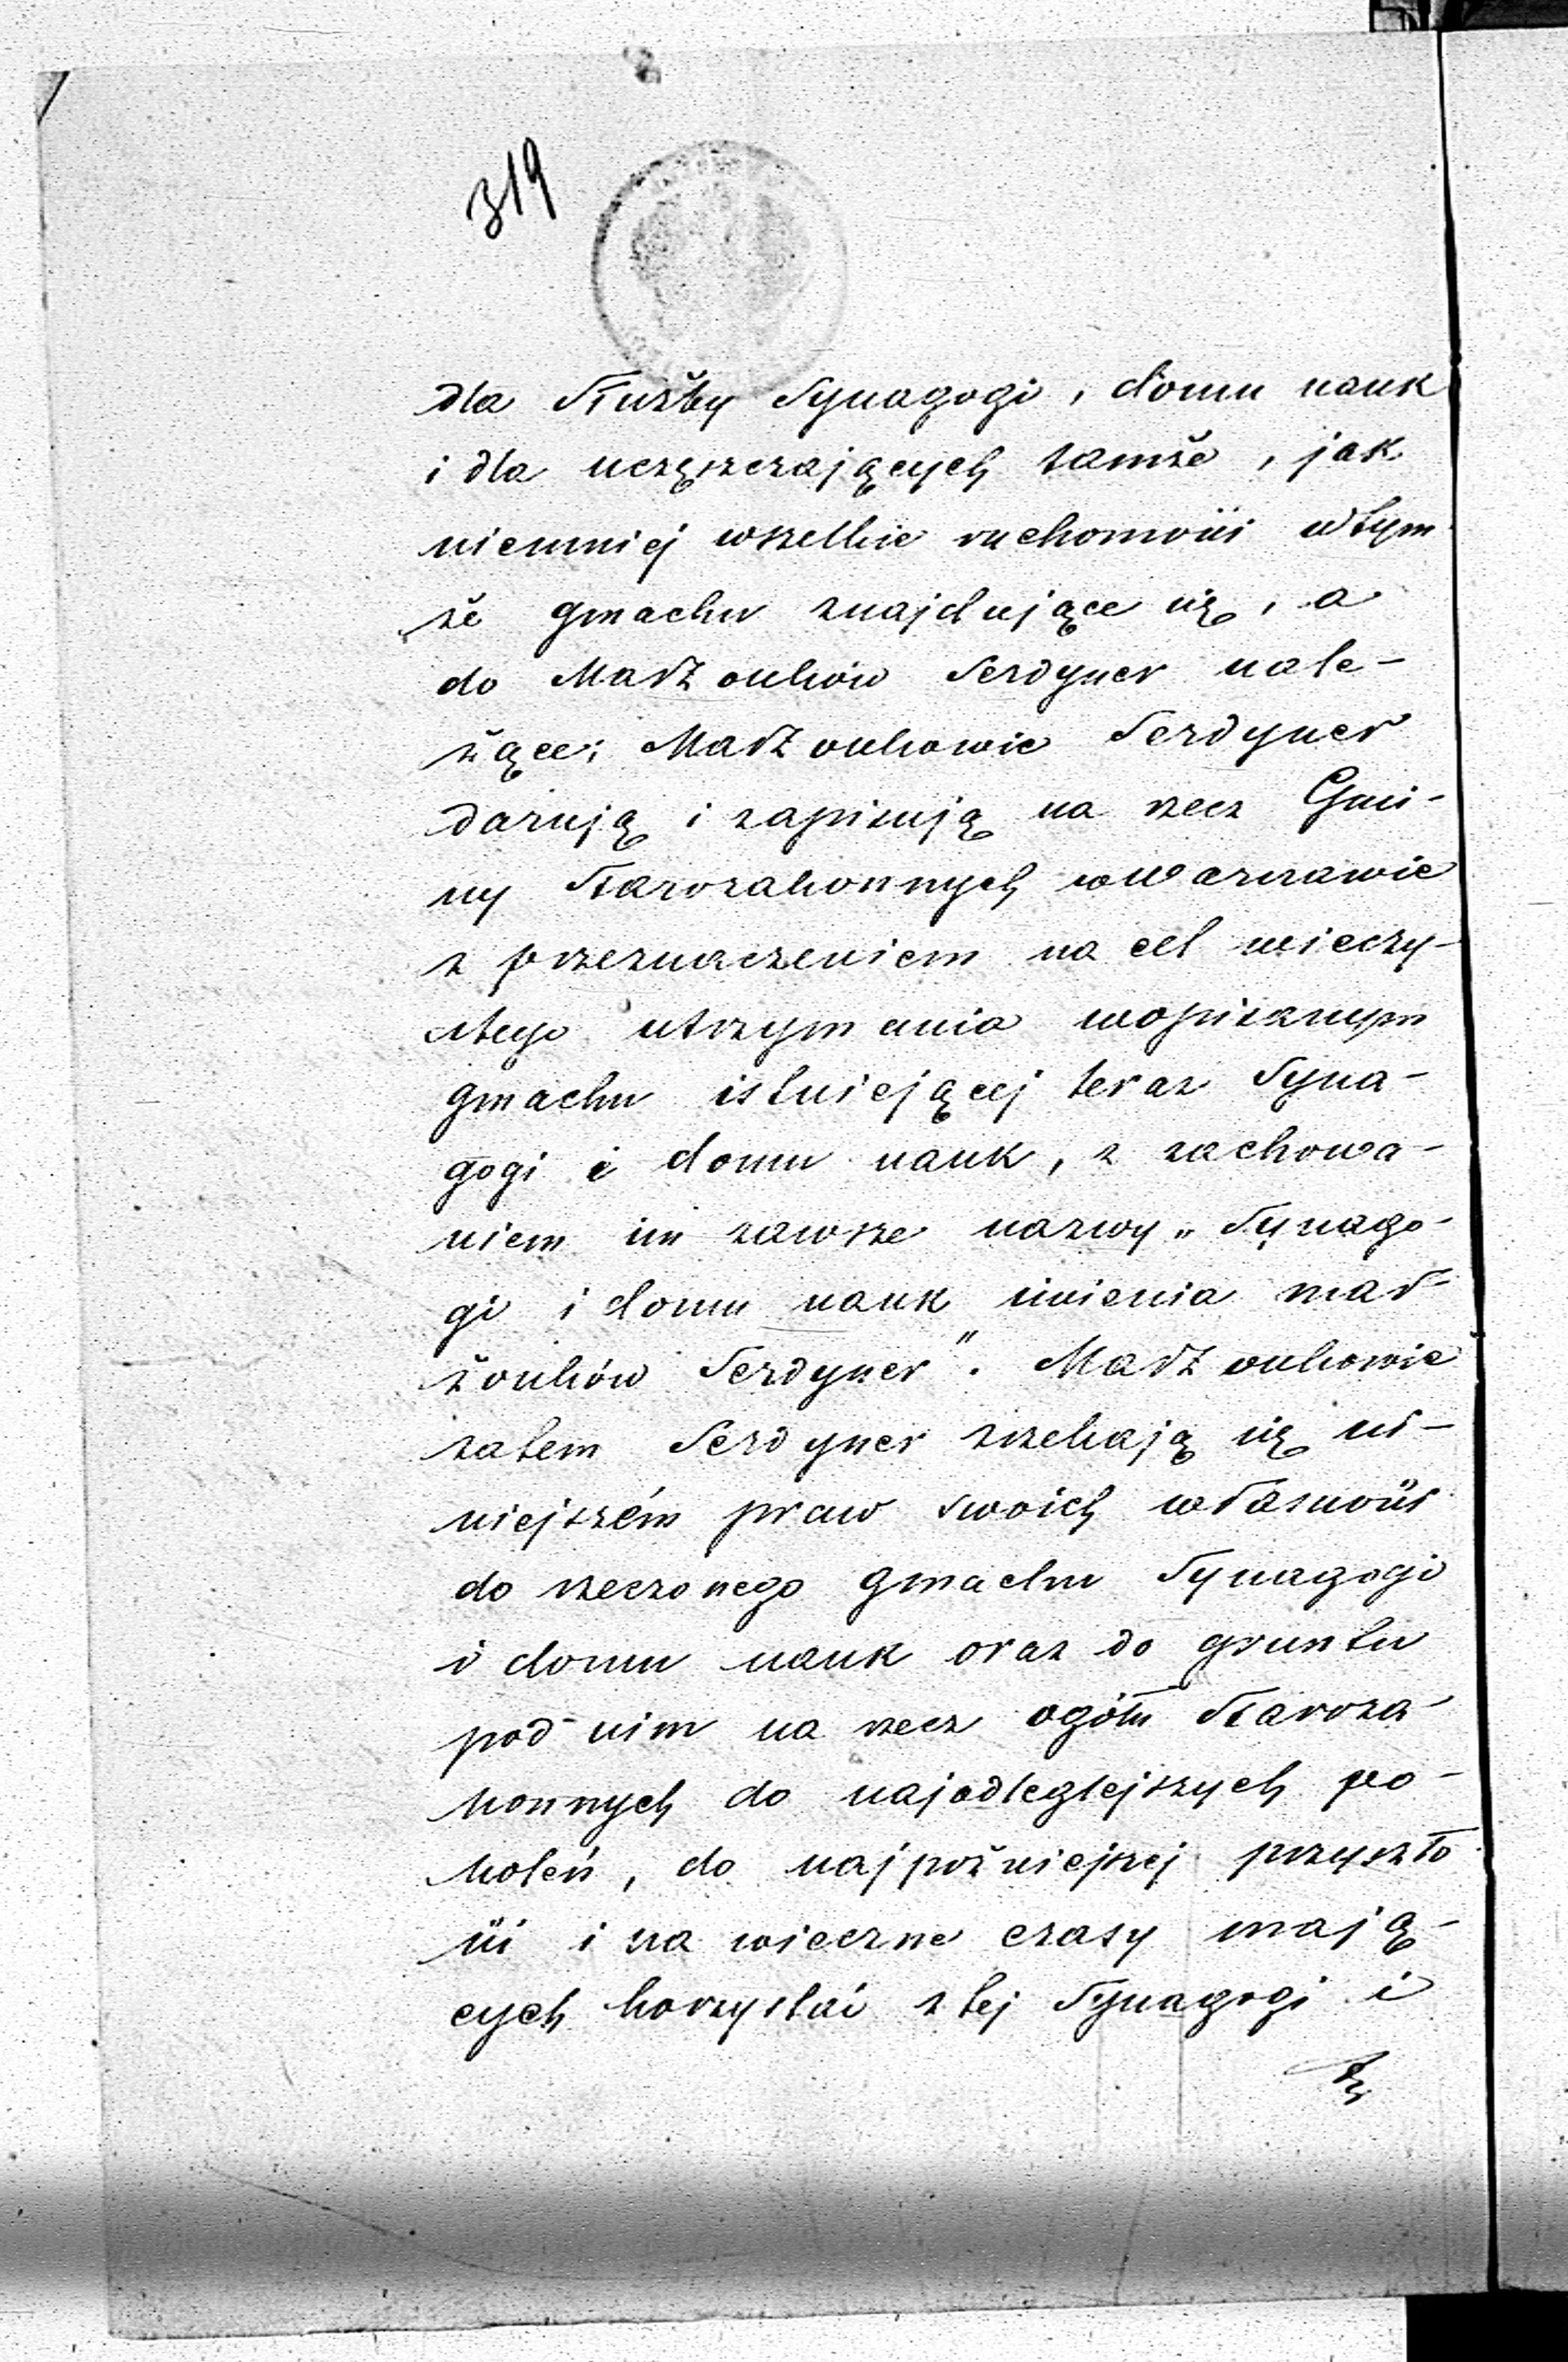 319
dla służby Synagogi, domu nauk
i dla uczęszczających tamże, jak
niemniej wszelkie ruchomości w tym
że gmachu znajdujące się, a
do Małżonków Serdyner nale-
żące; Małżonkowie Serdyner
darują i zapisują na rzecz Gmi-
ny Starozakonnych w Warszawie
z przeznaczeniem na cel wieczy-
stego utrzymania w opisanym
gmachu istniejącej teraz Syna-
gogi i domu nauk, z zachowa-
niem im zawsze nazwy „Synago-
gi i domu nauk imienia mał-
żonków Serdyner". Małżonkowie
zatem Serdyner zrzekają się ni-
niejszém praw swoich własności
do rzeczonego gmachu Synagogi
i domu nauk oraz do gruntu
pod nim na rzecz ogółu Staroza-
konnych do najodleglejszych po-
koleń, do najpoźniejszej przyszło
ści i na wieczne czasy mają-
cych korzystać z tej Synagogi i